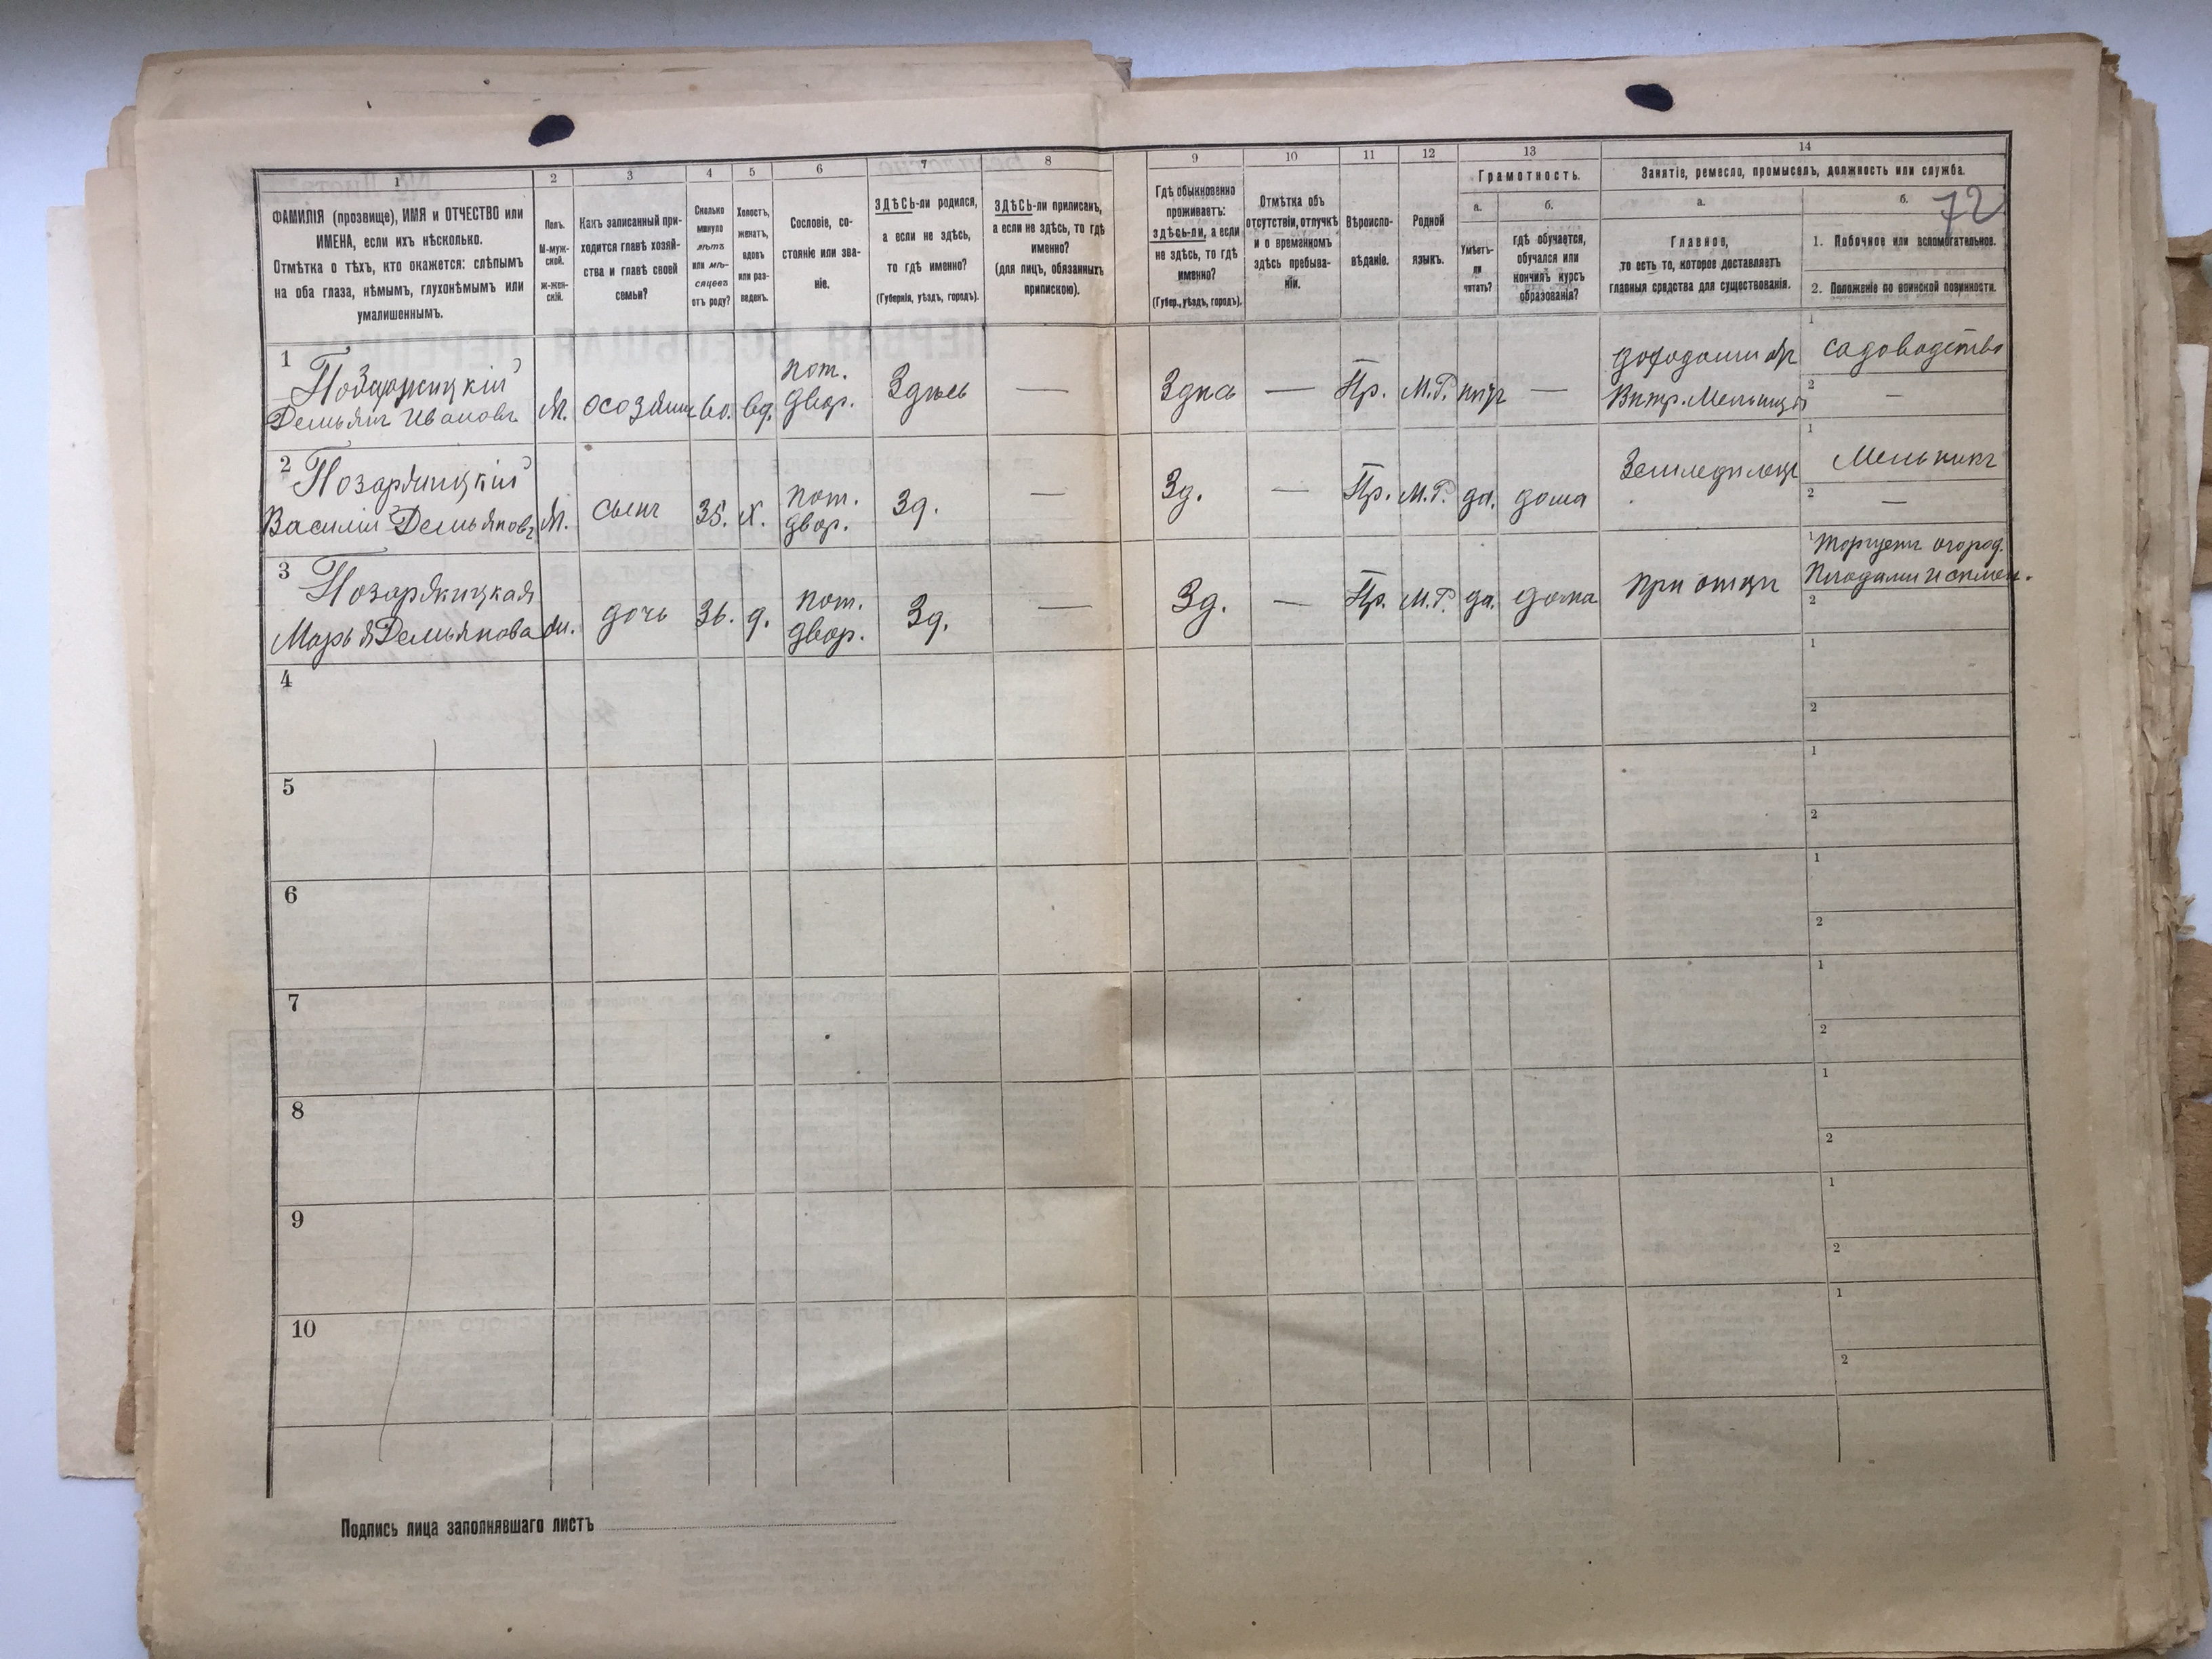 72
1
2
3
4
5
6
7
8
ФАМИЛІЯ (прозвище), ИМЯ и ОТЧЕСТВО или
ИМЕНА, если ихъ нѣсколько.
Отмѣтка о тѣхъ, кто окажется: слѣпымъ
на оба глаза, нѣмымъ, глухонѣмымъ или
умалишеннымъ.
Полъ.
М-муж-
ской.
Ж-жен-
скій.
Какъ записанный при-
ходится главѣ хозяй-
ства и главѣ своей
семьи?
Сколько
минуло
лѣтъ
или мѣ-
сяцевъ
отъ роду?
Холостъ,
женатъ,
вдовъ
или раз-
веденъ.
Сословіе, со-
стояніе или зва-
ніе.
ЗДѢСЬ-ли родился,
а если не здѣсь,
то гдѣ именно?
(Губернія, уѣздъ, городъ).
ЗДѢСЬ-ли приписанъ,
а если не здѣсь, то гдѣ
именно?
(для лицъ, обязанныхъ
припискою).
9
10
11
12
13
14
Гдѣ обыкновенно
проживаетъ:
здѣсь-ли, а если
не здѣсь, то гдѣ
именно?
(Губер., уѣздъ, городъ).
Отмѣтка объ
отсутствіи, отлучкѣ
и о временномъ
здѣсь пребыва-
ніи.
Вѣроиспо-
вѣданіе.
Родной
языкъ.
Грамотность.
а.
Умѣетъ-
ли
читать?
б.
гдѣ обучается,
обучался или
кончилъ курсъ
образованія?
Занятіе, ремесло, промыселъ, должность или служба.
а.
Главное,
то есть то, которое доставляетъ
главныя средства для существованія.
б.
1. Побочное или вспомогательное.
2. Положеніе по воинской повинности.
1
Демьянъ Ивановъ
М.
60.
вд.
пот.
двор.
Здѣсь
—
Здѣсь
—
Пр.
М.Р.
нѣтъ
—
Вѣтр. Мельницы
1
садоводство
2
—
2
Позаряицкій
Василій Демьяновъ
М.
сынъ
35.
х.
пот.
двор.
Зд.
—
Зд.
—
Пр.
М.Р.
да.
дома
Земледѣлецъ
1
Мельникъ
2
—
3
Марья Демьянова
дочь
36.
д.
пот.
двор.
Зд.
—
Зд.
—
Пр.
М.Р.
да.
дома
при отцѣ
1
огород.
Плодами и
2
4
1
2
5
1
2
6
1
2
7
1
2
8
1
2
9
1
2
10
1
2
Подпись лица заполнявшаго листъ